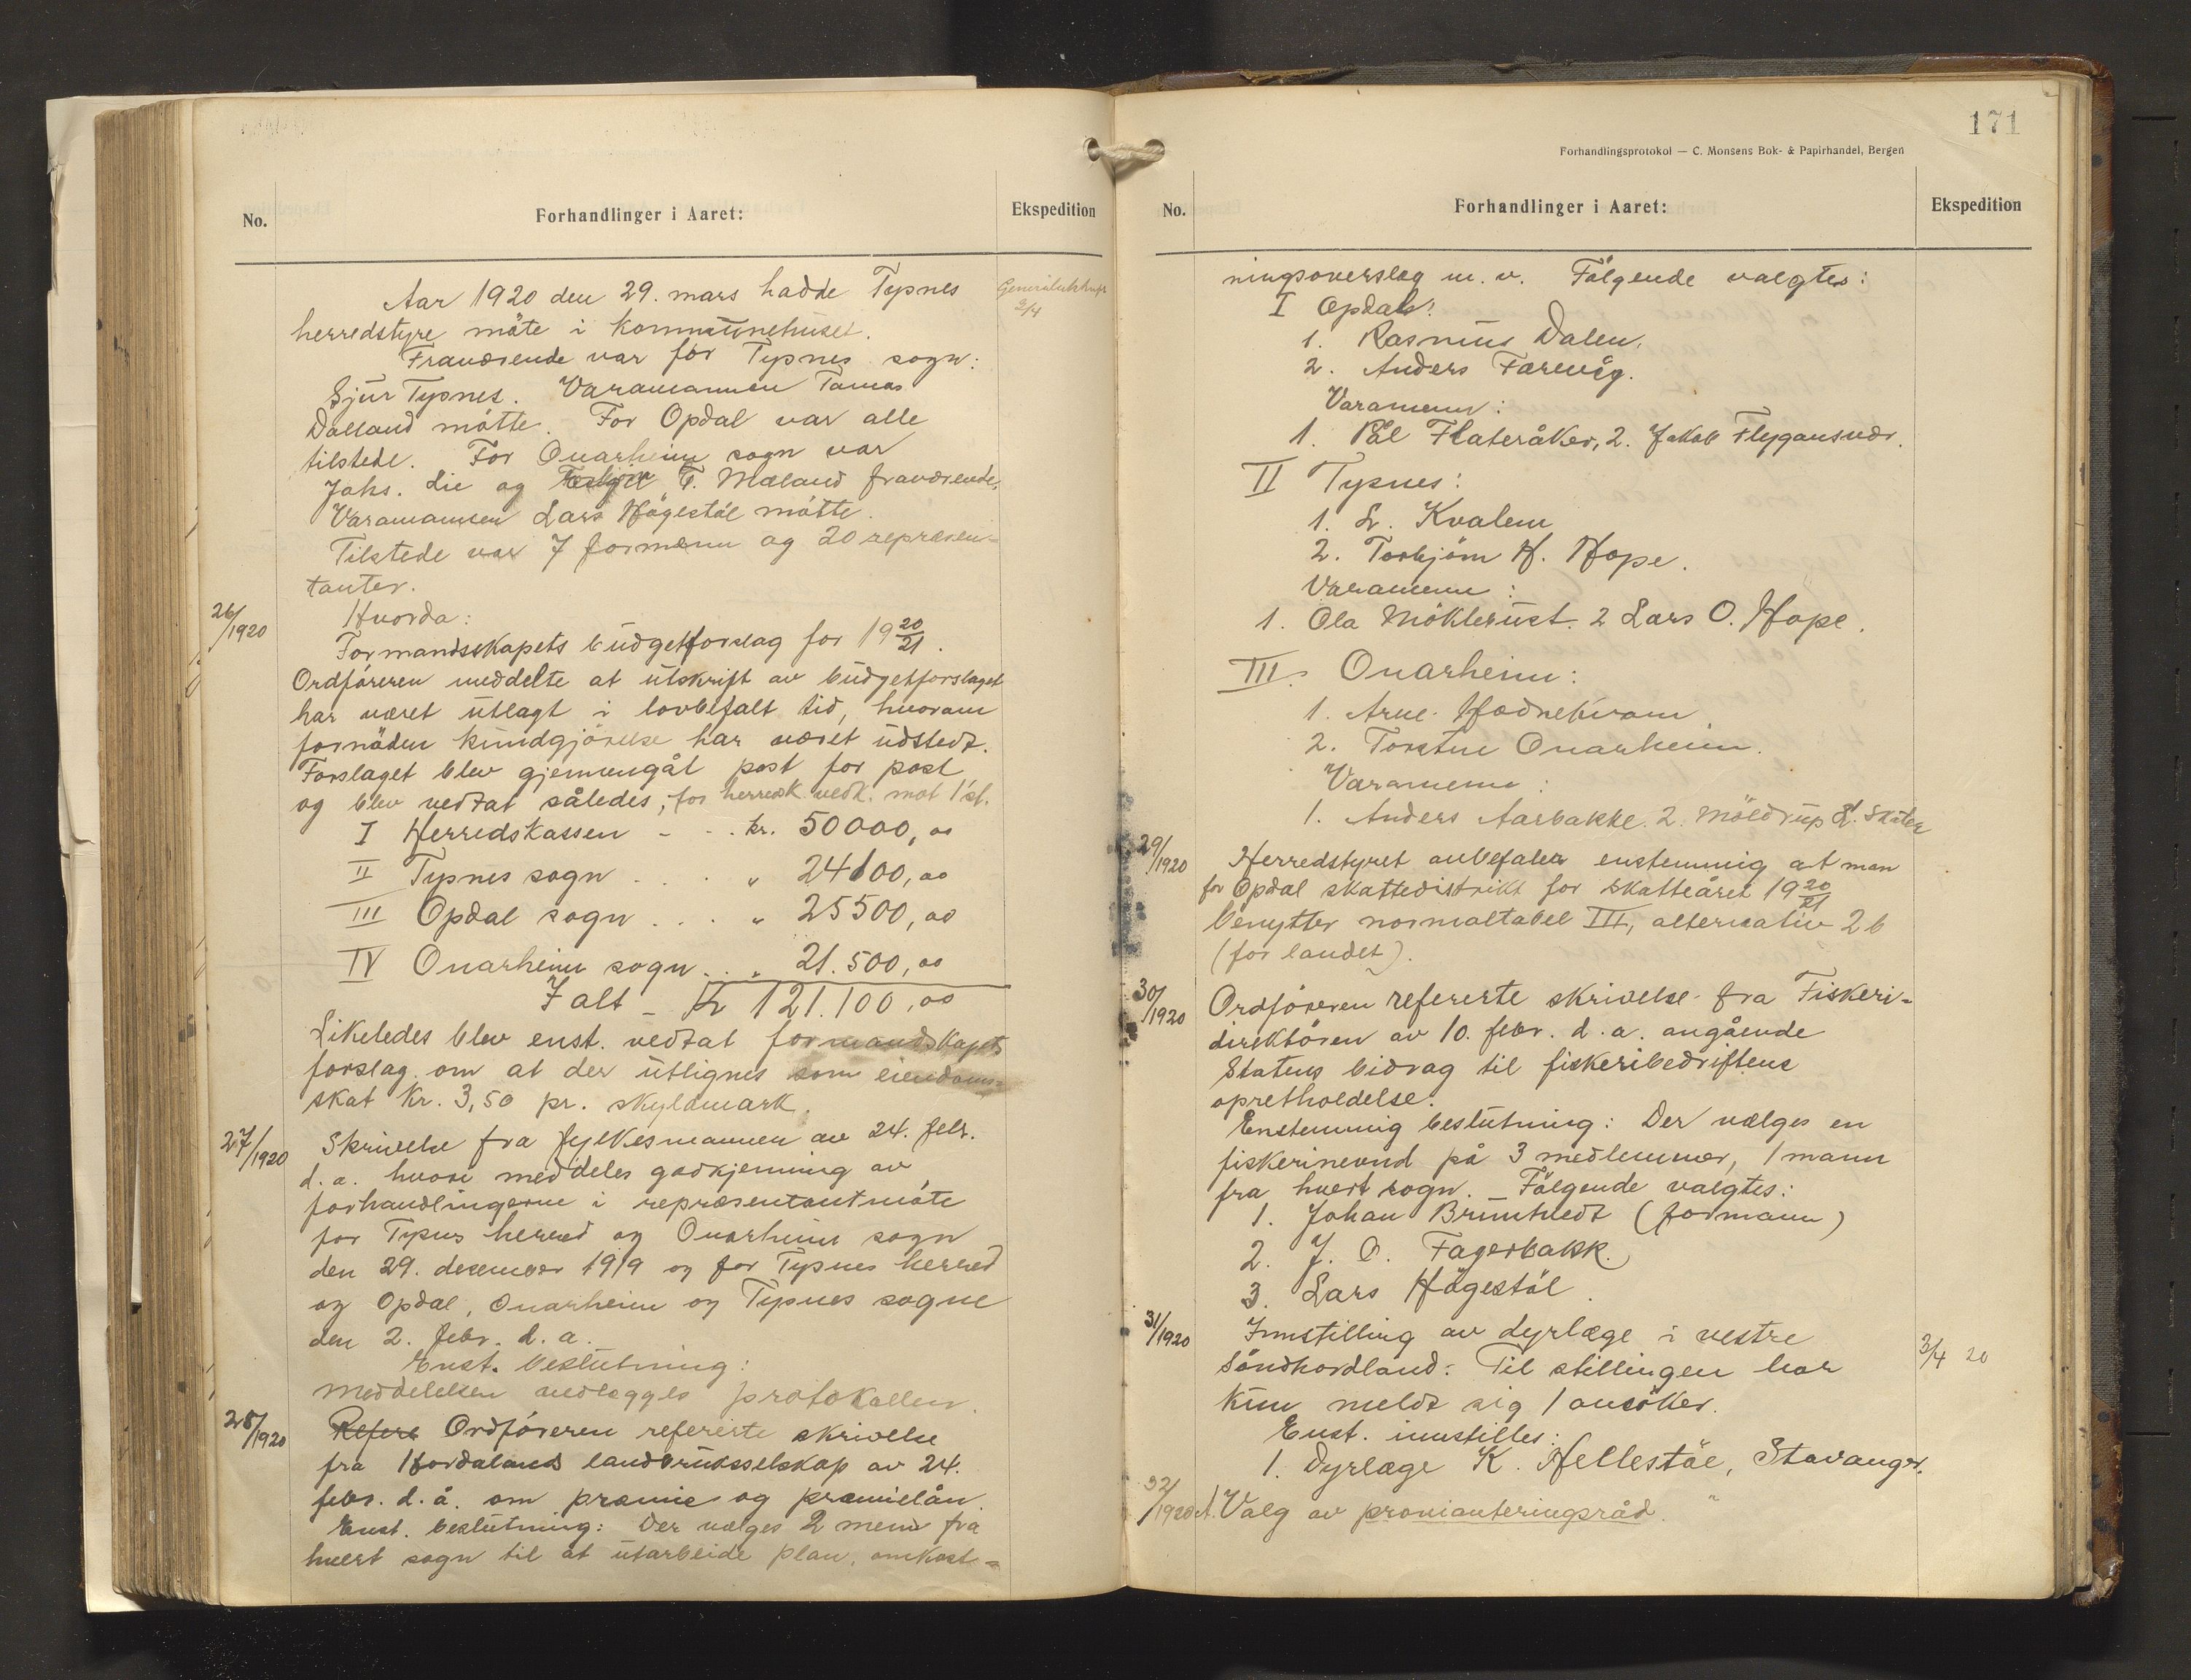 No.
Forhandlinger i Aaret:
Ekspedition
Aar 1920 den 29. mars hadde Tysnes
Generalutskrift
3/4
herredstyre møte i kommunehuset.
Fraværende var for Tysnes sogn:
Sjur Tysnes. Varamannen Tomas
Dalland møtte. For Opdal var alle
tilstede. For Onarheim sogn var
Johs. Lie og T. Mæland fraværende.
Varamannen Lars Høgestøl møtte.
Tilstede var 7 formenn og 20 represen-
tanter.
Hvorda:
26/1920
Formandsskapets budgetforslag for 19 20/21.
Ordføreren meddelte at utskrift av budgetforslaget
har været utlagt i lovbefalt tid, hvorom
fornøden kundgjørelse har været udstedt.
Forslaget blev gjennemgåt post for post
og blev vedtat således, for herredsk. vedk. mot 1 st.
I Herredskassen - - . kr. 50000,00
II Tysnes sogn . . . " 24100,00
III Opdal sogn . . . " 25500,00
IV Onarheim sogn . . " 21.500,00
I alt - Kr 121.100,00
Likeledes blev enst. vedtat formandskapets
forslag om at der utlignes som eiendoms-
skat Kr. 3,50 pr. skyldmark.
27/1920
Skrivelse fra fylkesmannen av 24. febr.
d.a. hvori meddeles godkjenning av
forhandlingerne i representantmøte
for Tysnes herred og Onarheim sogn
den 29. desember 1919 og for Tysnes herred
og Opdal, Onarheim og Tysnes sogne
den 2. febr. d.a.
Enst. beslutning:
Meddelelsen vedlægges protokollen.
28/1920
Refere Ordføreren refererte skrivelse
fra Hordalands landbruksselskap av 24.
febr. d.å. om præmie og præmielån.
Enst. beslutning: Der vælges 2 menn fra
hvert sogn til at utarbeide plan, omkost-
171
Forhandlingsprotokol — C. Monsens Bok- & Papirhandel, Bergen
No.
Forhandlinger i Aaret:
Ekspedition
ningsoverslag m.v. Følgende valgtes:
I Opdal:
1. Rasmus Dalen.
2. Anders Færevåg.
Varamenn:
1. Pål Flateråker, 2. Jakob Flygansvær.
II Tysnes:
1. L. Kvalem
2. Torbjørn H. Hope.
Varamenn:
1. Ola Møklebust. 2 Lars O. Hope.
III. Onarheim:
1. Arne Hodnekvam.
2. Torstein Onarheim.
Varamenn:
1. Anders Aarbakke. 2. Møldrup Skåten
29/1920
Herredstyret anbefaler enstemmig at man
for Opdal skattedistrikt for skatteåret 19 20/21
benytter normaltabel III, alternativ 2 b
(for landet).
30/1920
Ordføreren refererte skrivelse fra Fiskeri-
direktøren av 10. febr. d.a. angående
Statens bidrag til fiskeribedriftens
opretholdelse.
Enstemmig beslutning: Der vælges en
fiskerinevnd på 3 medlemmer, 1 mann
fra hvert sogn. - Følgende valgtes:
1. Johan Bruntvedt (formann)
2. J. O. Fagerbakk.
3. Lars Høgestøl.
31/1920
Innstilling av dyrlæge i vestre
3/4 20
Søndhordland: Til stillingen har
kun meldt sig 1 ansøker.
Enst. innstilles:
1. Dyrlæge K. Hellestøl, Stavanger.
32/1920
A. Valg av provianteringsråd.